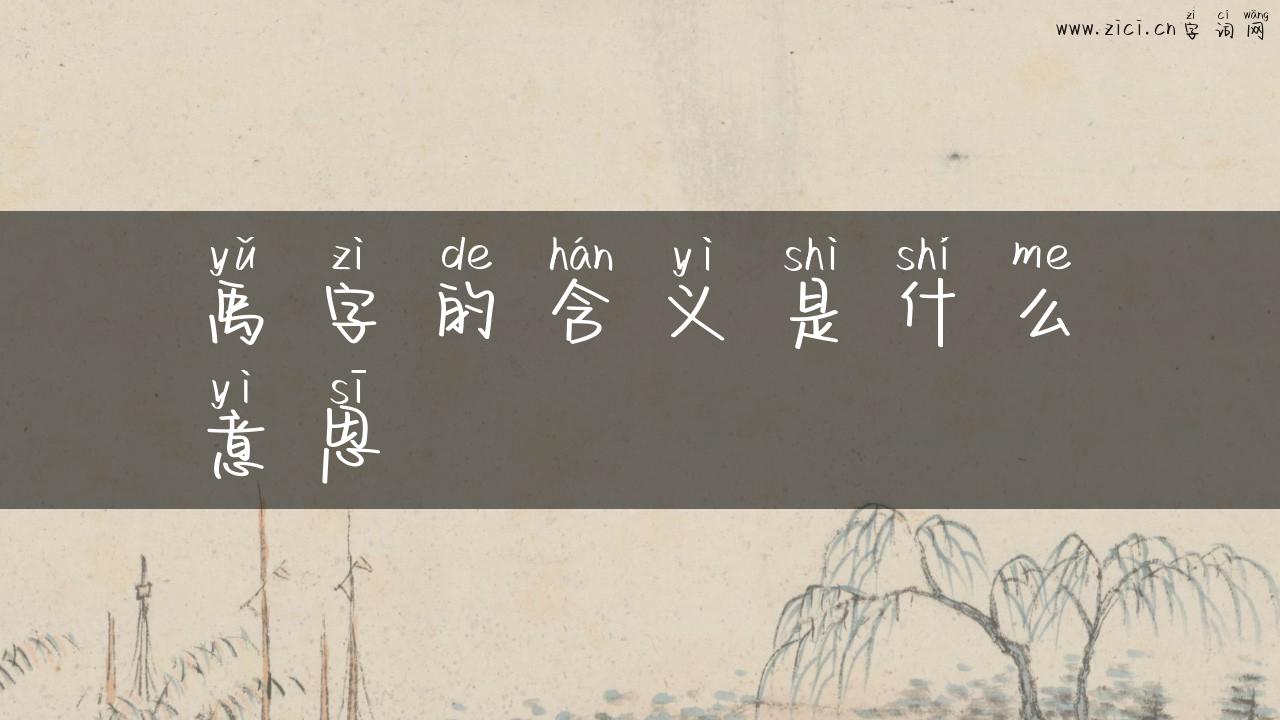 www.zici.cn 字词网
zì cí wǎng
yǔ zì de hán yì shì shí me
禹字的含义是什么
yì sī
意思